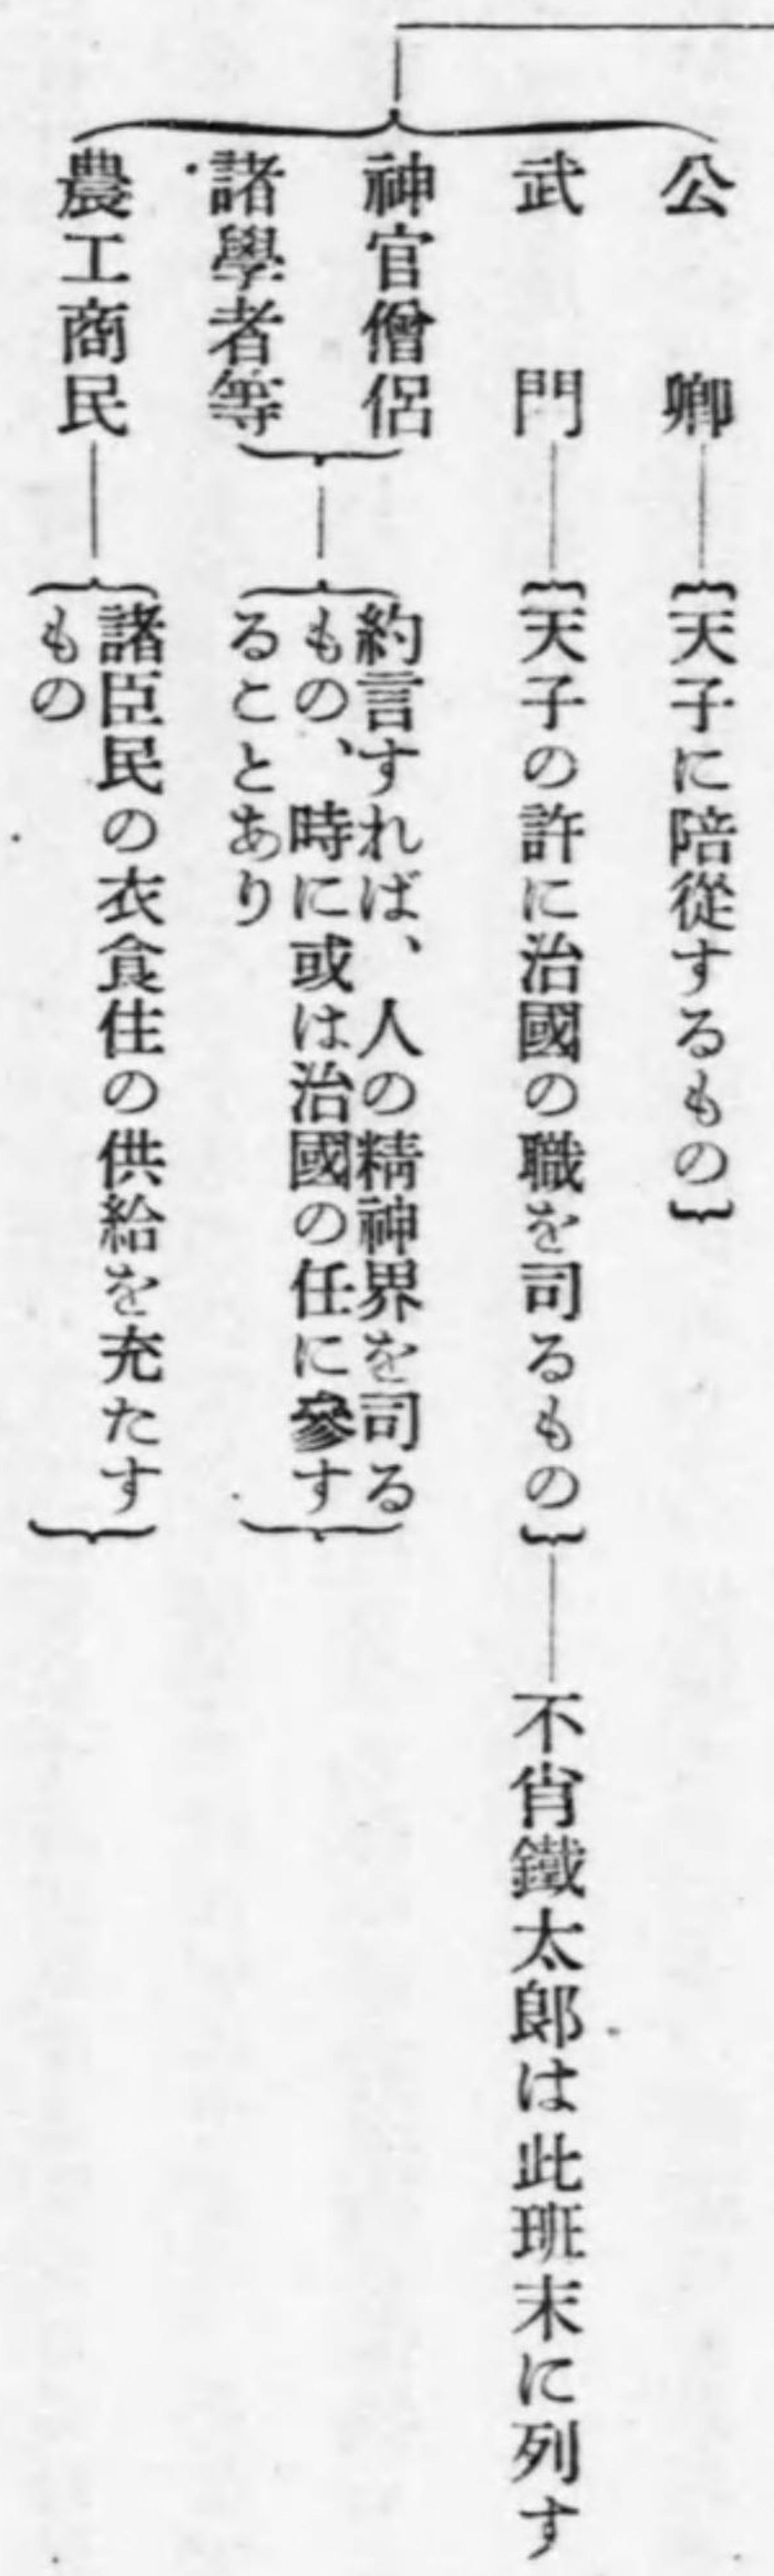 公卿
天子に陪從するもの
武門
天子の許に治國の職を司るもの
不肖鐵太郎は此班末に列す
神官僧侶
諸學者等
約言すれば、人の精神界を司る
もの、時に或は治國の任に參す
ることあり
農工商民
諸臣民の衣食住の供給を充たす
もの